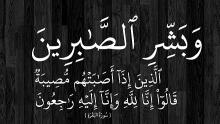 وَبَشِّرِ ٱلصَّٰبِرِينَ
ٱلَّذِينَ إِذَآ أَصَٰبَتْهُم مُّصِيبَةٌ
قَالُوٓا۟ إِنَّا لِلَّهِ وَإِنَّآ إِلَيْهِ رَٰجِعُونَ
(سورة البقرة)